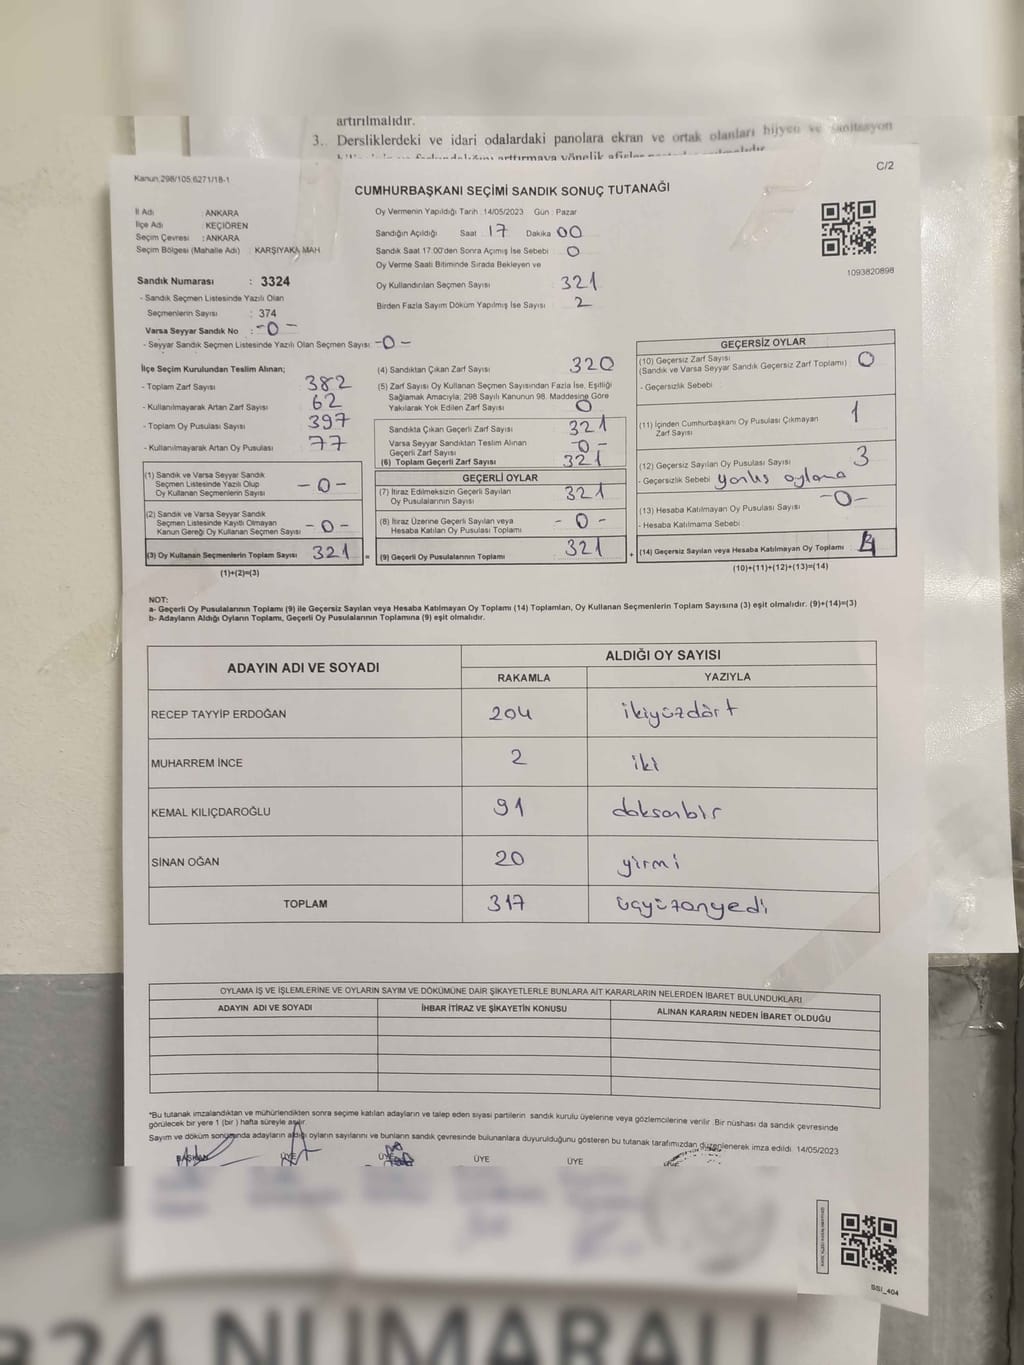 artırılmalıdır.
3. Dersliklerdeki ve idari odalardaki panolara ekran ve ortak olanları hijyen ve sanitasyon
C/2
Kanun:298/105;6271/18-1
CUMHURBAŞKANI SEÇİMİ SANDIK SONUÇ TUTANAĞI
İl Adı : ANKARA
İlçe Adı : KEÇİÖREN
Seçim Çevresi : ANKARA
Seçim Bölgesi (Mahalle Adı) : KARŞIYAKA MAH
Sandık Numarası : 3324
- Sandık Seçmen Listesinde Yazılı Olan
Seçmenlerin Sayısı : 374
Varsa Seyyar Sandık No : -0-
- Seyyar Sandık Seçmen Listesinde Yazılı Olan Seçmen Sayısı: -0-
Oy Vermenin Yapıldığı Tarih : 14/05/2023 Gün : Pazar
Sandığın Açıldığı Saat : 17 Dakika 00
Sandık Saat 17.00'den Sonra Açımış İse Sebebi 0
Oy Verme Saati Bitiminde Sırada Bekleyen ve
Oy Kullandırılan Seçmen Sayısı 321
Birden Fazla Sayım Döküm Yapılmış İse Sayısı 2
1093820898
İlçe Seçim Kurulundan Teslim Alınan;
- Toplam Zarf Sayısı 382
- Kullanılmayarak Artan Zarf Sayısı 62
- Toplam Oy Pusulası Sayısı 397
- Kullanılmayarak Artan Oy Pusulası 77
(1) Sandık ve Varsa Seyyar Sandık
Seçmen Listesinde Yazılı Olup
Oy Kullanan Seçmenlerin Sayısı -0-
(2) Sandık ve Varsa Seyyar Sandık
Seçmen Listesinde Kayıtlı Olmayan
Kanun Gereği Oy Kullanan Seçmen Sayısı -0-
(3) Oy Kullanan Seçmenlerin Toplam Sayısı 321 =
(1)+(2)=(3)
(4) Sandıktan Çıkan Zarf Sayısı 320
(5) Zarf Sayısı Oy Kullanan Seçmen Sayısından Fazla İse, Eşitliği
Sağlamak Amacıyla; 298 Sayılı Kanunun 98. Maddesine Göre
Yakılarak Yok Edilen Zarf Sayısı 0
Sandıkta Çıkan Geçerli Zarf Sayısı 321
Varsa Seyyar Sandıktan Teslim Alınan
Geçerli Zarf Sayısı -0-
(6) Toplam Geçerli Zarf Sayısı 321
GEÇERLİ OYLAR
(7) İtiraz Edilmeksizin Geçerli Sayılan
Oy Pusulalarının Sayısı 321
(8) İtiraz Üzerine Geçerli Sayılan veya
Hesaba Katılan Oy Pusulası Toplamı -0-
(9) Geçerli Oy Pusulalarının Toplamı 321 +
GEÇERSİZ OYLAR
(10) Geçersiz Zarf Sayısı
(Sandık ve Varsa Seyyar Sandık Geçersiz Zarf Toplamı) 0
- Geçersizlik Sebebi
(11) İçinden Cumhurbaşkanı Oy Pusulası Çıkmayan
Zarf Sayısı 1
(12) Geçersiz Sayılan Oy Pusulası Sayısı 3
- Geçersizlik Sebebi yanlış oylama
(13) Hesaba Katılmayan Oy Pusulası Sayısı -0-
- Hesaba Katılmama Sebebi
(14) Geçersiz Sayılan veya Hesaba Katılmayan Oy Toplamı : 4
(10)+(11)+(12)+(13)=(14)
NOT:
a- Geçerli Oy Pusulalarının Toplamı (9) ile Geçersiz Sayılan veya Hesaba Katılmayan Oy Toplamı (14) Toplamları, Oy Kullanan Seçmenlerin Toplam Sayısına (3) eşit olmalıdır. (9)+(14)=(3)
b- Adayların Aldığı Oyların Toplamı, Geçerli Oy Pusulalarının Toplamına (9) eşit olmalıdır.
ADAYIN ADI VE SOYADI ALDIĞI OY SAYISI
RAKAMLA YAZIYLA
RECEP TAYYİP ERDOĞAN 204 ikiyüzdört
MUHARREM İNCE 2 iki
KEMAL KILIÇDAROĞLU 91 doksanbir
SİNAN OĞAN 20 yirmi
TOPLAM 317 üçyüzonyedi
OYLAMA İŞ VE İŞLEMLERİNE VE OYLARIN SAYIM VE DÖKÜMÜNE DAİR ŞİKAYETLERLE BUNLARA AİT KARARLARIN NELERDEN İBARET BULUNDUKLARI
ADAYIN ADI VE SOYADI İHBAR İTİRAZ VE ŞİKAYETİN KONUSU ALINAN KARARIN NEDEN İBARET OLDUĞU
*Bu tutanak imzalandıktan ve mühürlendikten sonra seçime katılan adayların ve talep eden siyasi partilerin sandık kurulu üyelerine veya gözlemcilerine verilir. Bir nüshası da sandık çevresinde
görülecek bir yere 1 (bir) hafta süreyle asılır.
Sayım ve döküm sonunda adayların aldığı oyların sayılarını ve bunların sandık çevresinde bulunanlara duyurulduğunu gösteren bu tutanak tarafımızdan düzenlenerek imza edildi. 14/05/2023
BAŞKAN ÜYE ÜYE ÜYE ÜYE
SSI_404
324 NUMARALI